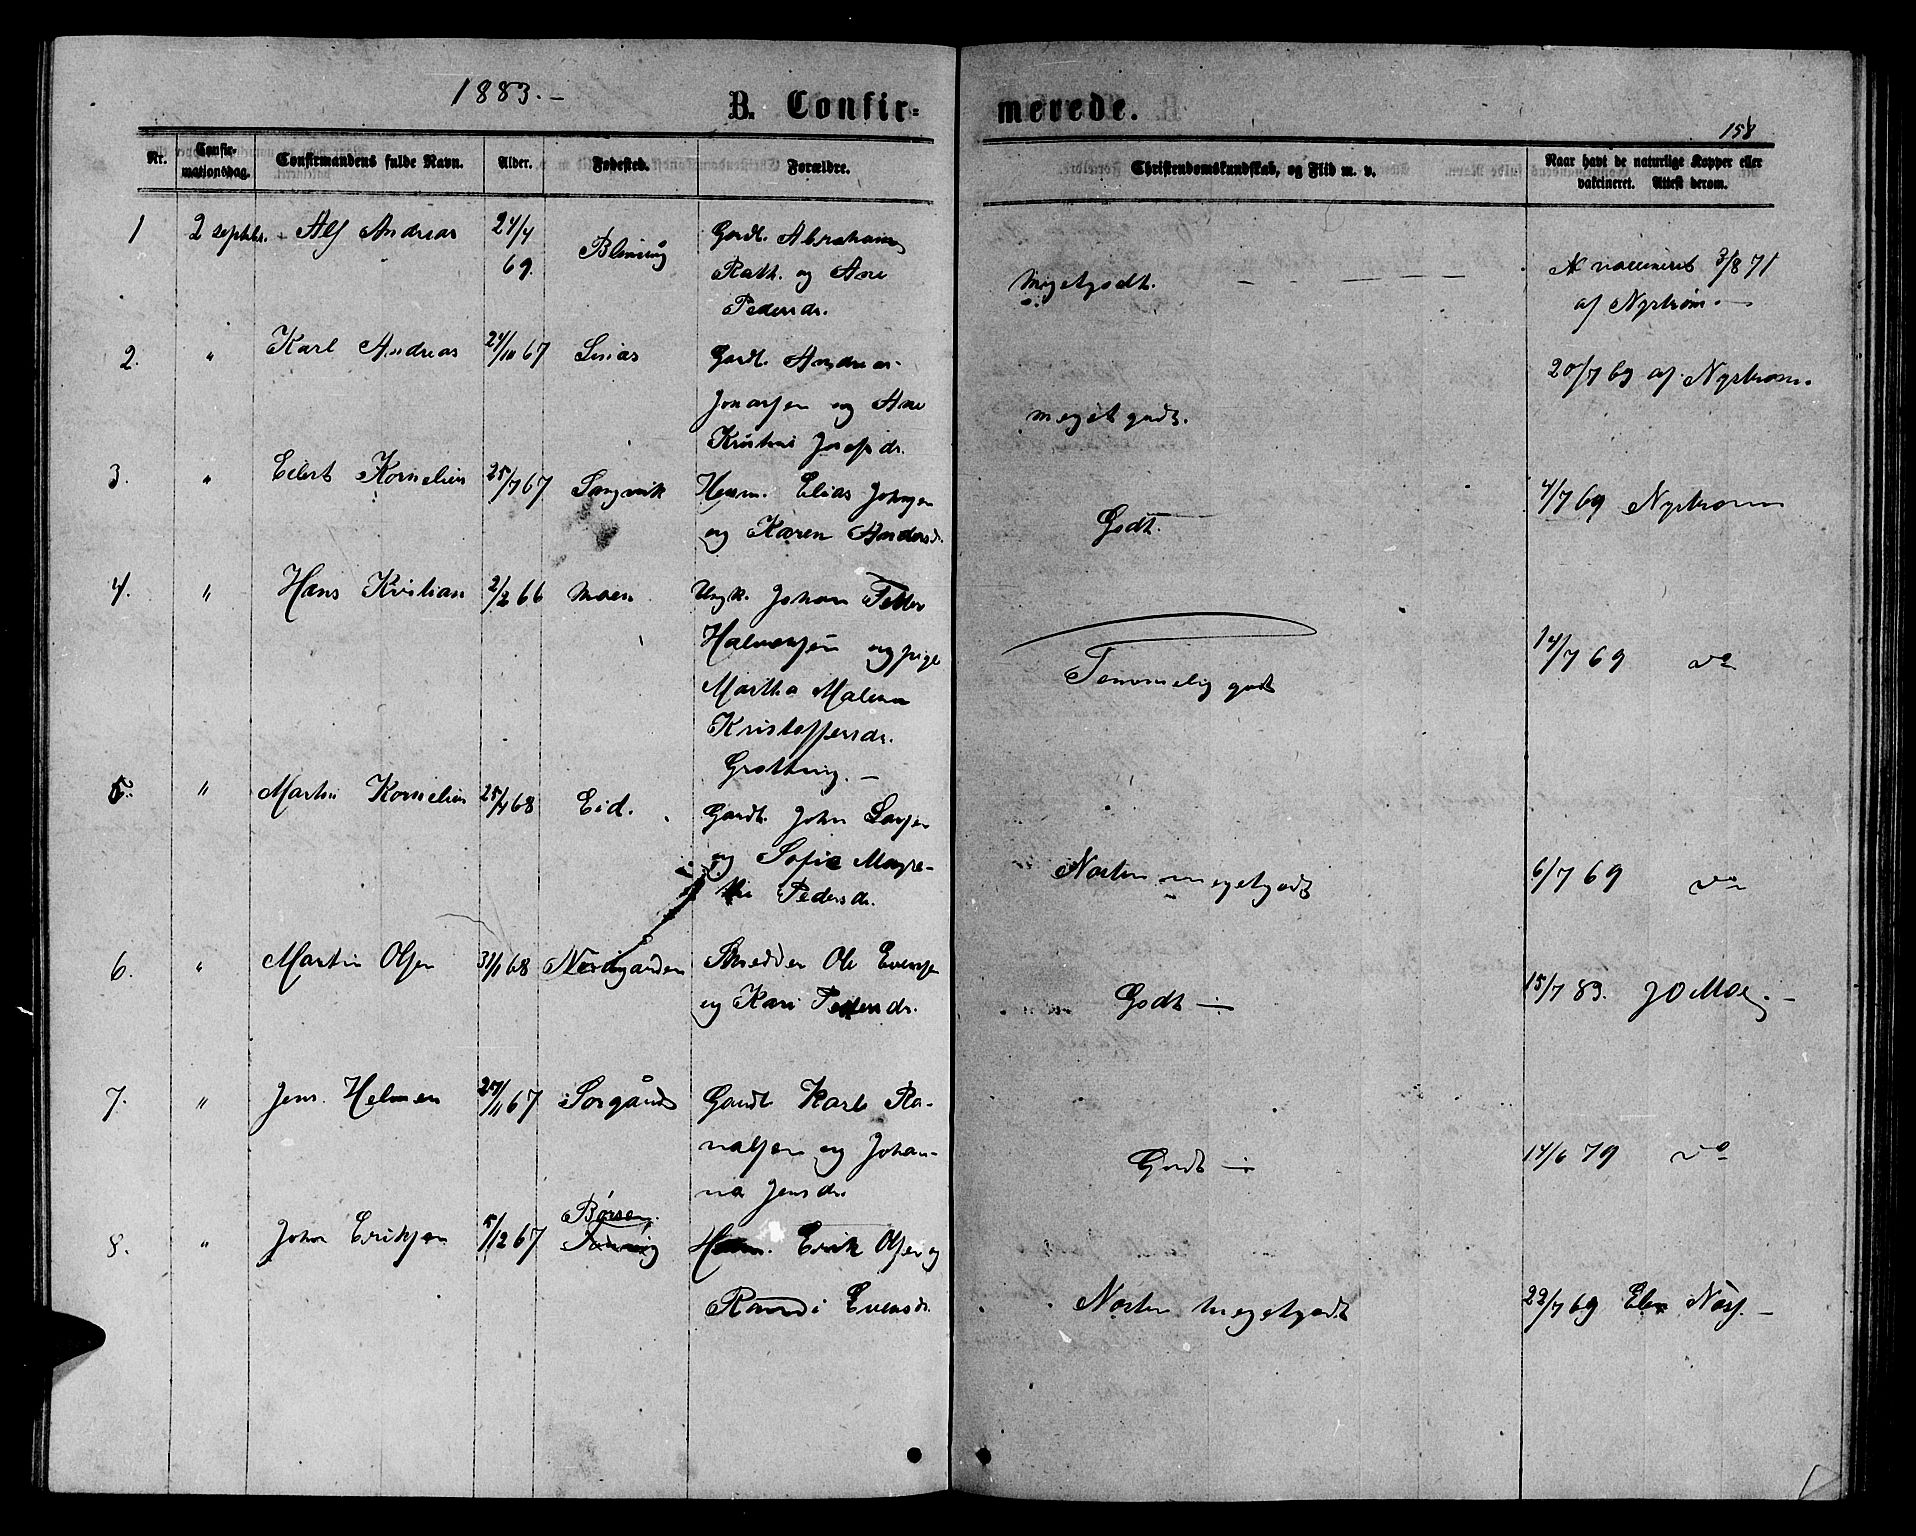 1883.-
B. Confirmerede.
158
Nr. Confirmationsdag. Confirmandens fulde Navn. Alder. Fødested. Forældre. Christendomskundskab, og Flid m. v. Naar havt de naturlige Kopper eller vakcineret. Attest derom.
1 2 septbr. Alf Andreas 24/4 69. Gardt. Abraham
Rath. og Ane
Pedersdr.
Megetgodt. vaccineret 3/8 71
af Nystrøm.
2. " Karl Andreas 24/10 67 Gardt. Andreas
Jonassen og Ane
Kristine Josefsdr.
meget godt. 20/7 69 af Nystrøm.
3. " Eilert Kornelius 25/7 67 Sørgvik Husm. Elias Johnsen
og Karen Andersdr.
Godt. 4/7 69 Nystrom
4. " Hans Kristian 2/2 66 Moen Ungk. Johan Petter
Halvorsen og pige
Martha Malena
Kristoffersdr.
Grøtting.-
Temmelig godt 14/7 69 do
5. " Martin Kornelius 25/4 68 Eid. Gardt. John Larsen
og Sofie Magre-
the Pedersdr.
Næsten megetgodt 6/7 69 do
6. " Martin Olsen 31/1 68 Nordgarden Skredder Ole Evensen
og Kari Pedersdr.
Godt - 15/7 83. J O Moe.-
7. " Jens Helmer 27/11 67 Sørgård Gardt Karl Ro-
nalsen og Johan-
na Jensdr.
Godt - 14/6 79 do
8. " John Eriksen 5/12 67 Børsen. Husm. Erik Olsen og
Randi Evensdr.
Næsten megetgodt 22/7 69 Næss.-